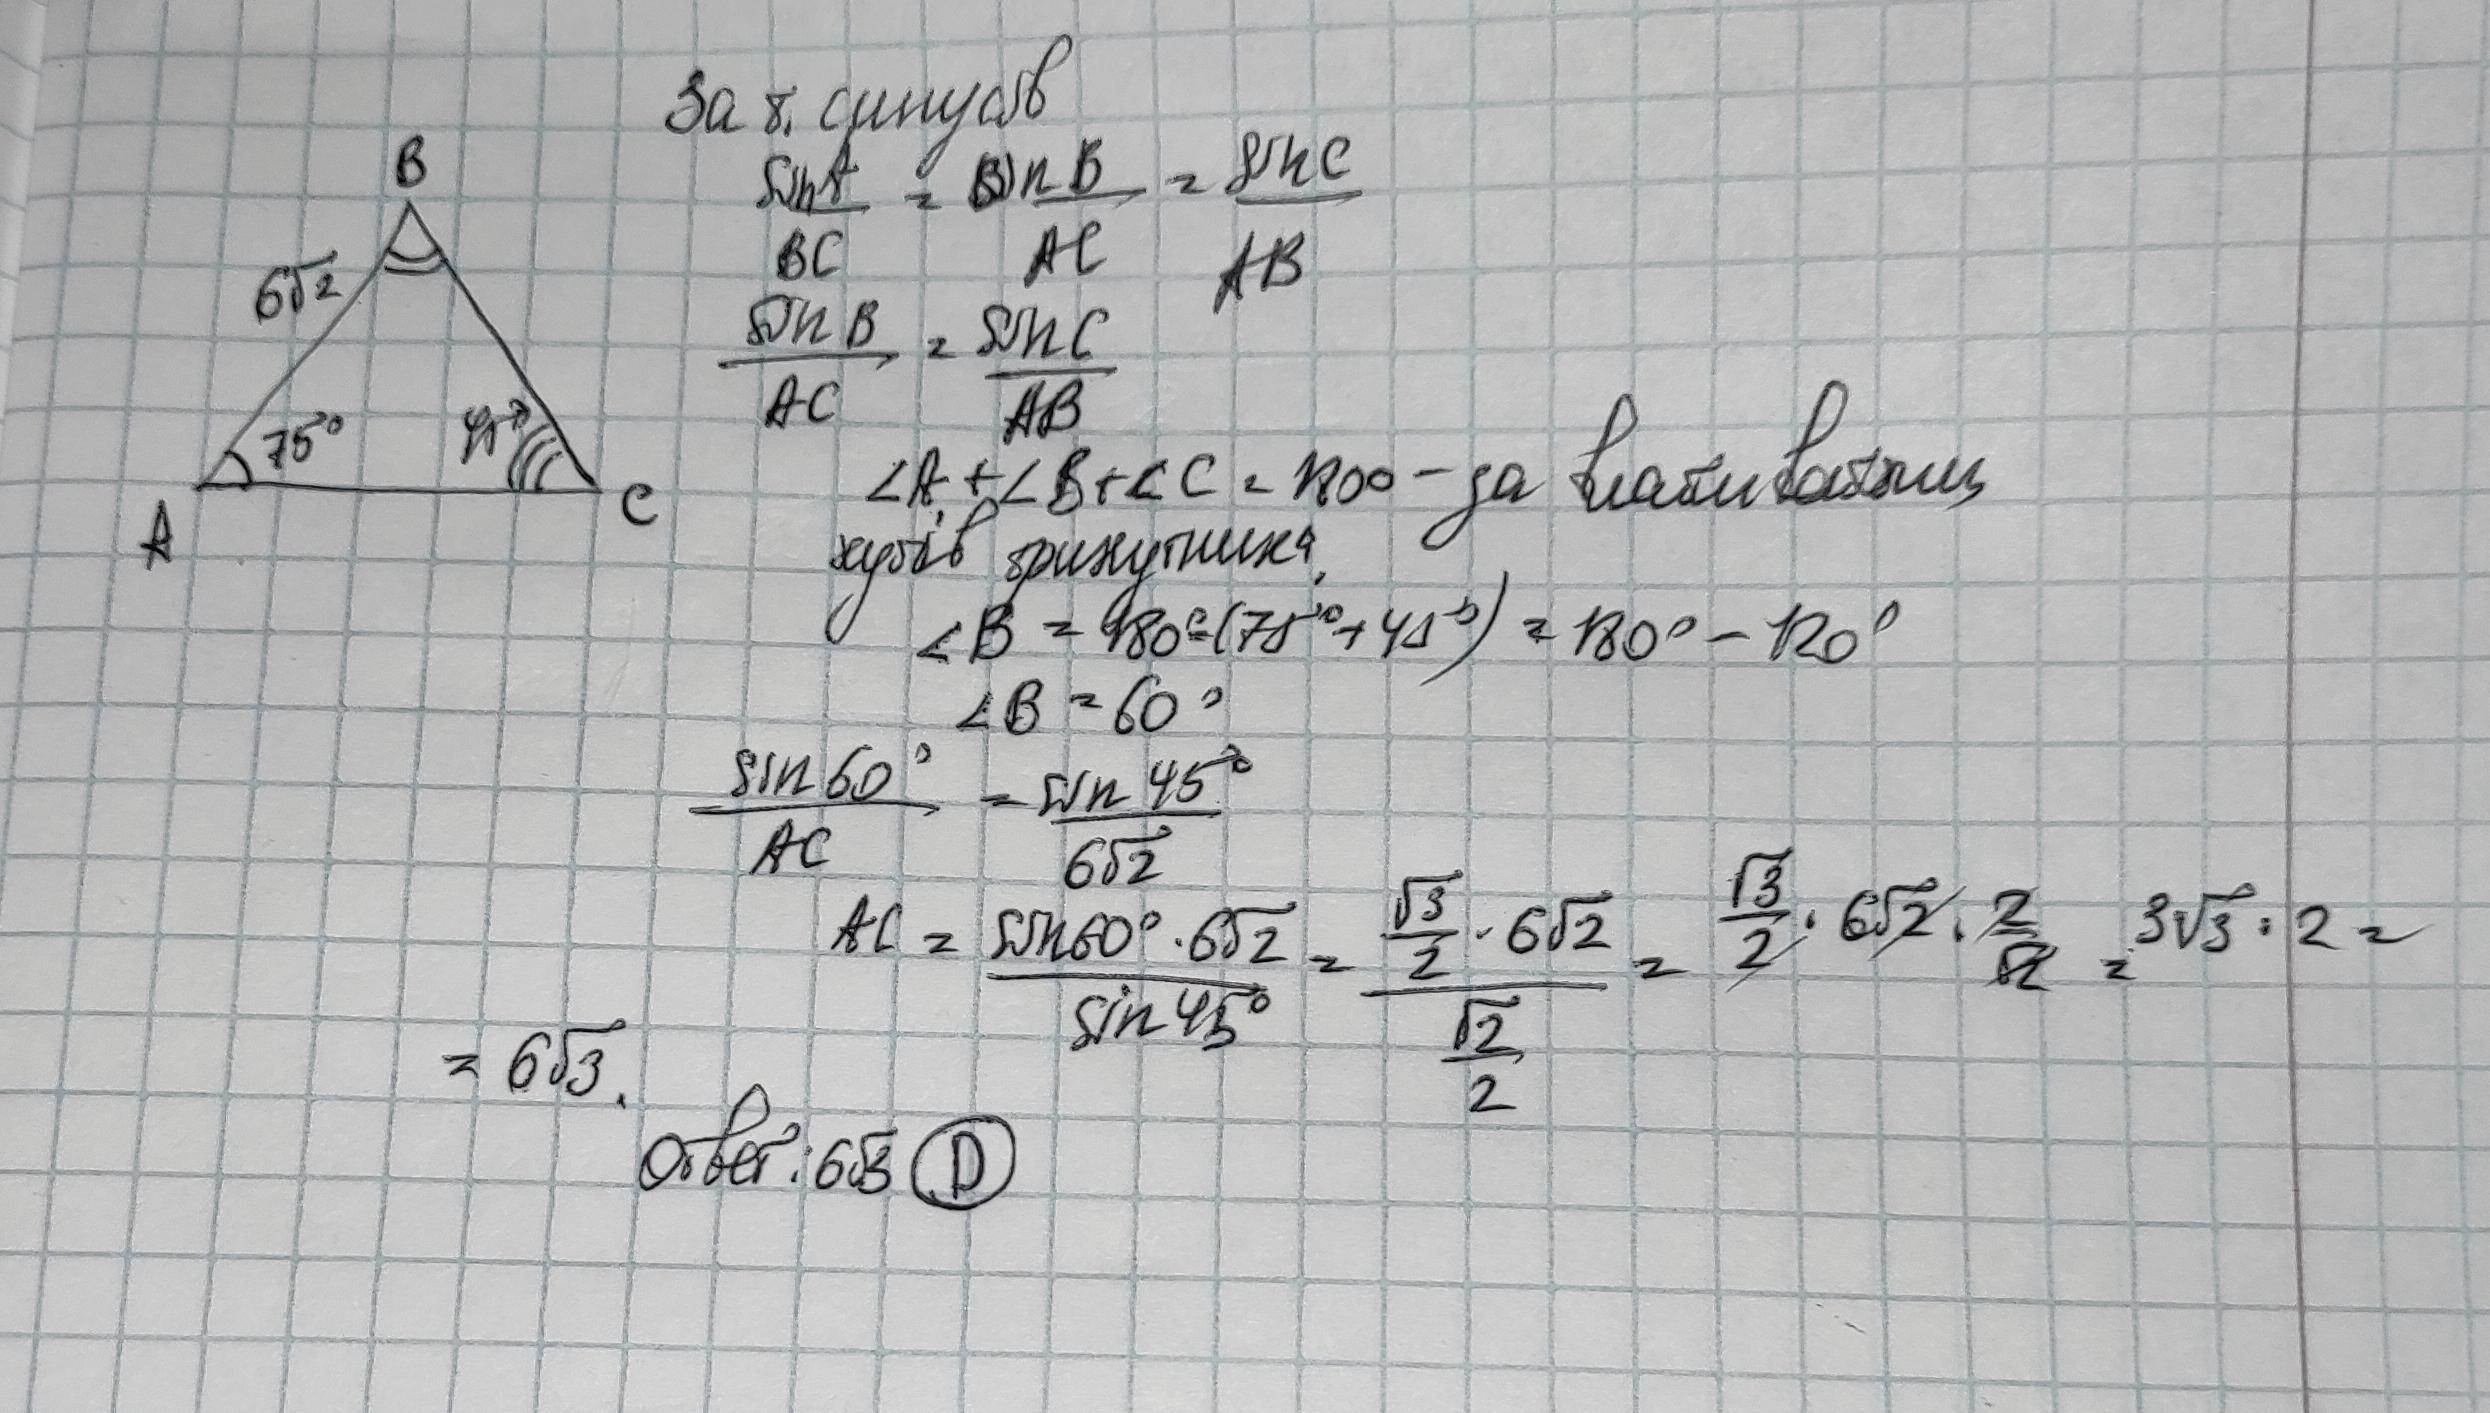 За т. синусів
sin A / BC = sin B / AC = sin C / AB
B
6√2
75°
45°
A
C
sin B / AC = sin C / AB
∠A + ∠B + ∠C = 180° - за
кутів трикутника.
∠B = 180° - (75° + 45°) = 180° - 120°
∠B = 60°
sin 60° / AC = sin 45° / 6√2
AC = sin 60° · 6√2 / sin 45° = √3/2 · 6√2 / √2/2 = √3/2 · 6√2 · 2/√2 = 3√3 · 2 =
= 6√3.
Ответ: 6√3 D